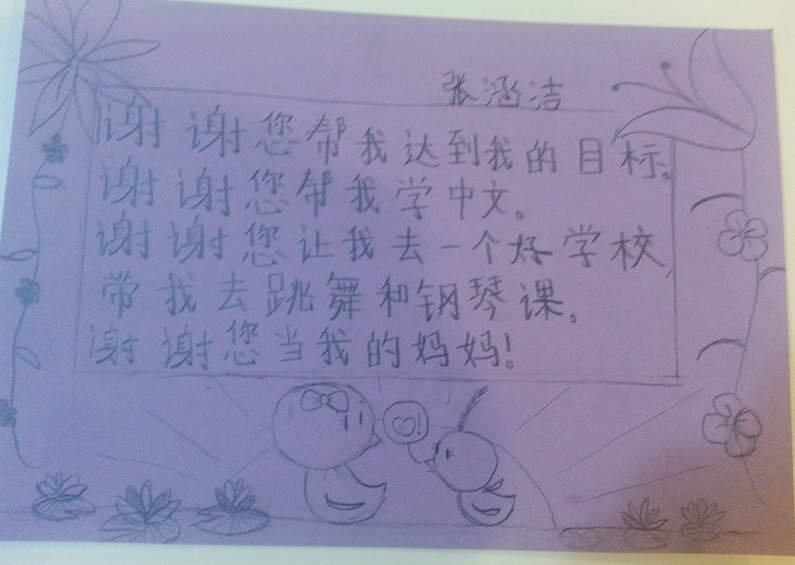 张涵洁
谢谢您帮我达到我的目标。
谢谢您帮我学中文。
谢谢您让我去一个好学校,
带我去跳舞和钢琴课。
谢谢您当我的妈妈!